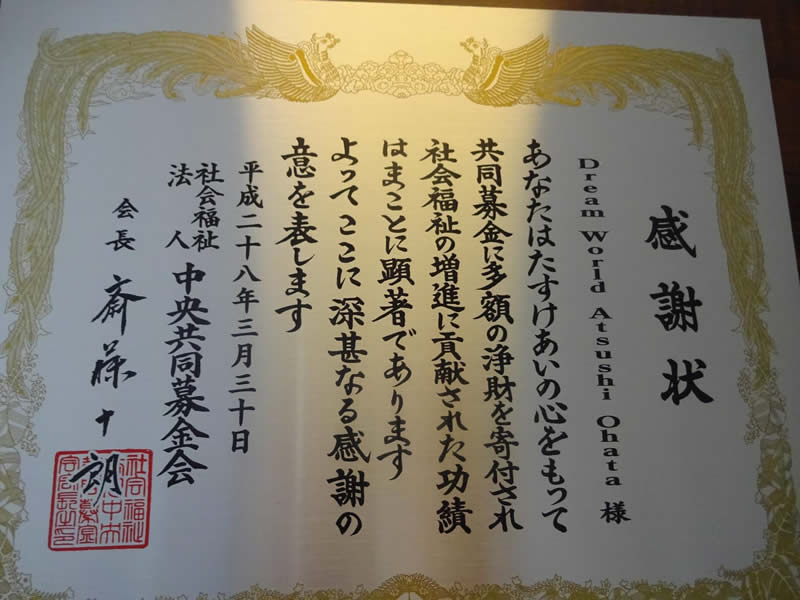 感謝状
Dream World Atsushi Ohata 様
あなたはたすけあいの心をもって
共同募金に多額の浄財を寄付され
社会福祉の増進に貢献された功績
はまことに顕著であります
よってここに深甚なる感謝の
意を表します
平成二十八年三月三十日
社会福祉
法人
中央共同募金会
会長 斎藤十朗